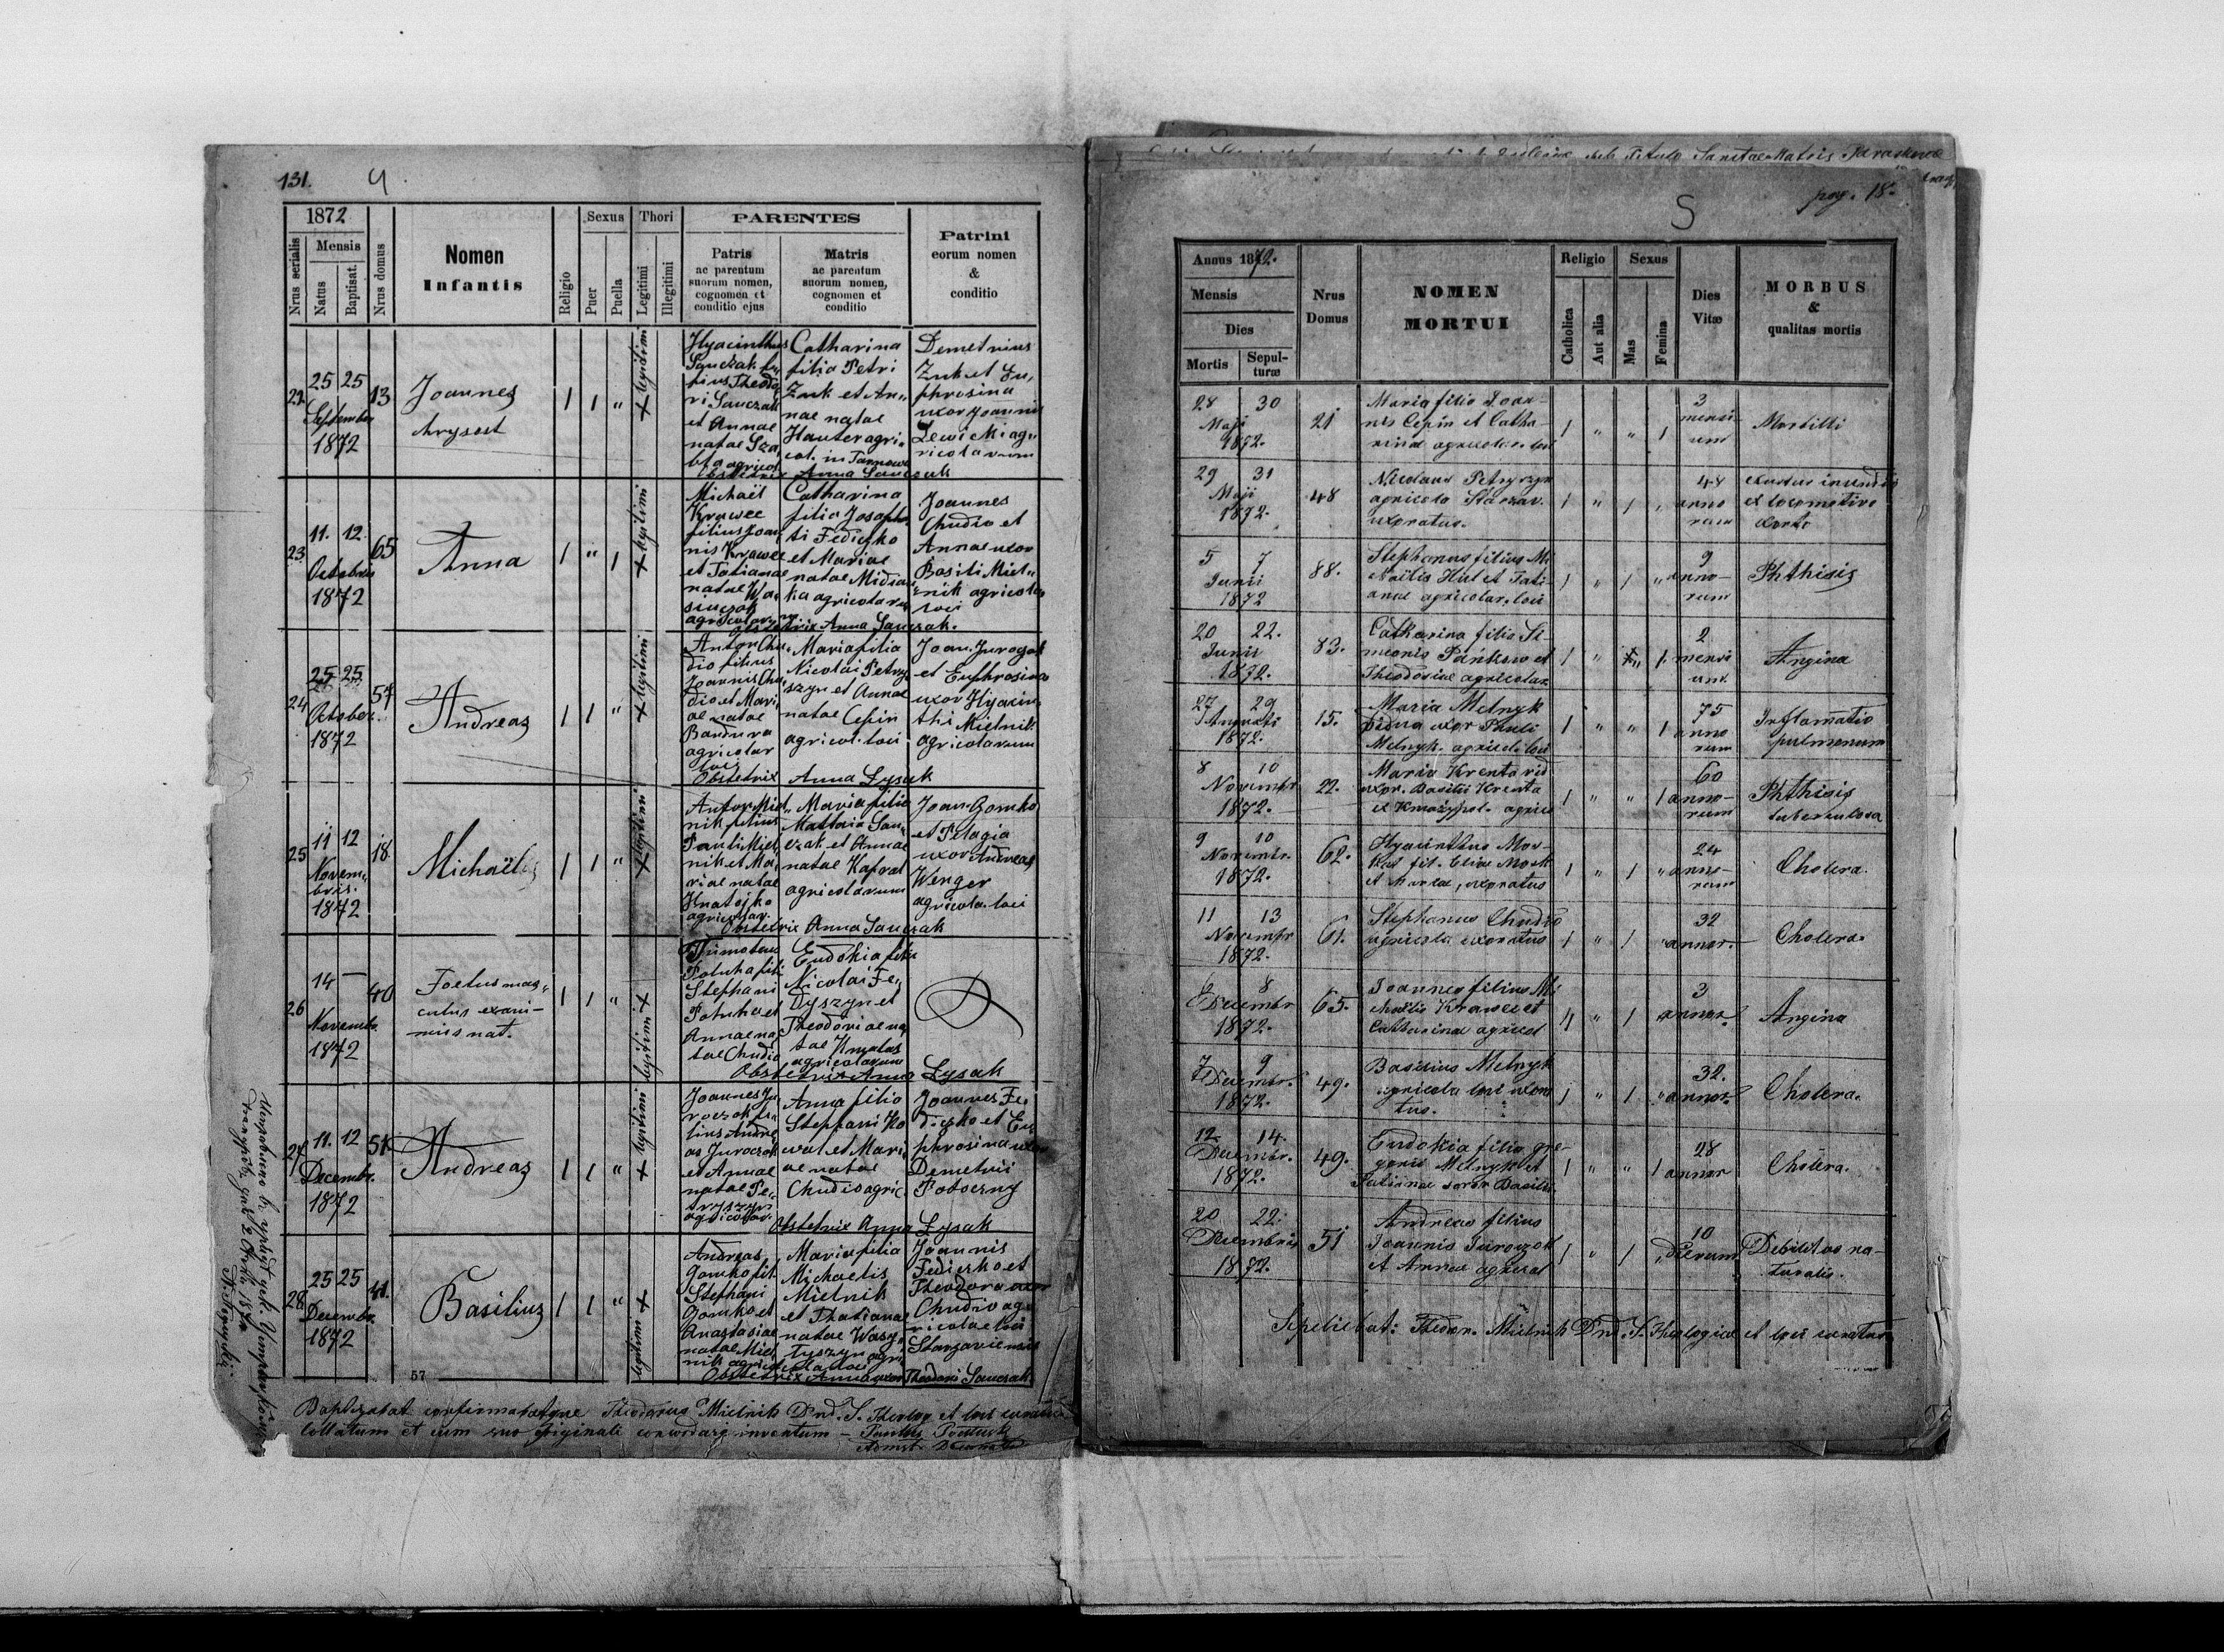 131. 4.
1872
Nrus serialis
Mensis
Natus
Baptisat.
Nrus domus
Nomen
Infantis
Religio
Sexus
Puer
Puella
Thori
Legitimi
Illegitimi
PARENTES
Patris
ac parentum
suorum nomen,
cognomen et
conditio ejus
Matris
ac parentum
suorum nomen,
cognomen et
conditio
Patrini
eorum nomen
&
conditio
22
25 25
Septembr
1872
13
Joannes
1 1 "
+ legitimi
Hyacinthus
Sauczak fi„
lius Theodo
ri Sauczak
et Annae
natae
agricol
Catharina
filia Petri
Zuk et An„
nae natae
Hauter agri„
col. in Tarnawa
Demetrius
Zuk et Eu„
phrosina
uxor Joannis
Lewicki ag„
ricolarum
Obstetrix Anna Sauczak
23
11. 12.
Octobris
1872
65
Anna
1 " 1
+ legitimi
Michaël
Krawec
filius Joan
nis Krawec
et Tatianae
natae Wa„
agricolar.
Catharina
filia Josapha
ti Fediczko
et Mariae
natae
agricolarum
Joannes
Chudio et
Anna uxor
Basili Miel„
nik agricolar
loci
Obstetrix Anna Sauczak.
24
25 25
October.
1872
57
Andreas
1 1 "
+ legitimi
Anton Chu„
dio filius
Joannis Chu„
dio et Mari
ae natae
Bandura
agricolar
loci
Maria filia
Nicolai Petry
szyn et Annae
natae Cepin
agricol. loci
Joan. Jurogak
et Euphrosina
uxor Hyacin„
thi Mielnik
agricolarum
Obstetrix Anna Lysak
25
11 12
Novem„
bris.
1872
18
Michaël
1 1 "
+ legitimi
Anton Miel„
nik filius
Pauli Miel„
nik et Ma„
riae natae
Hnatejko
agricolar.
Maria filia
Mathaei Sau„
czak et Annae
natae Kapral
agricolarum
Joan Gomko
et Pelagia
uxor Andreas
Wenger
agricola. loci
Obstetrix Anna Sauczak
26
14 —
Novembr.
1872
40
Foetus mas„
culus exani-
mis nat.
1 1 "
legitimi +
Timoteus
Potuha fili
Stephani
Potuha et
Annae na
tae Chudio
Eudokia filia
Nicolai Fe„
Dyszyn et
Theodoriae na
tae
agricolarum
Obstetrix Anna Lysak
27
11. 12
Decembr.
1872
51
Andreas
1 1 "
+ legitimi
Joannes Ju
roczok fi„
lius Andre„
as Juroczok
et Annae
natae Pe„
tryszyn
agricolar.
Anna filia
Stephani Ko
wal et Mari
ae natae
Chudio agric.
Joannes Fe„
diczko et Eu
phrosina uxor
Demetrii
Potoczny
Obstetrix Anna Lysak
28
25 25
Decembr.
1872
41.
Basilius
1 1 "
legitimi +
Andreas
Gomko fil.
Stephani
Gomko et
Anastasiae
natae Miel
nik agricol
Maria filia
Michaelis
Mielnik
et Thatianae
natae Wasy„
tyszyn agri„
colae loci
Joannis
Fediczko et
Theodora uxor
Chudio ag„
ricolae loci
Starzaviensis
Obstetrix Anna uxor Theodori Sauczak.
57
Baptizabat confirmabatque Theodorus Mielnik Dnd. S. Theolog et loci curatus
Collatum et cum suo originali concordare inventum —
pag. 18.
5
Annus 1872.
Mensis
Dies
Mortis
Sepul-
turæ
Nrus
Domus
NOMEN
MORTUI
Religio
Catholica
Aut alia
Sexus
Mas
Femina
Dies
Vitæ
MORBUS
&
qualitas mortis
28 30
Maji
1872.
21
Maria filia Joan-
nis Cepin et Catha-
rinae agricolar. loci
1 " " 1
3
mensi-
um
Morbilli
29 31
Maji
1872.
48
Nicolaus Petryszyn
agricola Starzav.
uxoratus.
1 " 1 "
48
anno
rum
ex locomotivo
5 7
Junii
1872
88.
Stephanus filius Mi
chaëlis Hul et Tati-
anae agricolar. loci
1 " 1 "
9
anno-
rum
Phthisis
20 22.
Junii
1872.
83.
Catharina filia Si-
meonis Pańkow et
Theodosiae agricolar
1 " " 1
2
mensi
um.
Angina
27 29
Augusti
1872.
15.
Maria Melnyk
vidua uxor Pauli
Melnyk. agricol. loci
1 " " 1
75
anno
rum
Inflamatio
pulmonum
8 10
Novembr
1872.
22.
Maria Krenta vid
uxor. Basilii Krenta
1 " " 1
60
anno-
rum
Phthisis
tuberculosa
9 10
Novembr.
1872.
62.
Hyacinthus Mos-
kal fil. Eliae Mosk
et Mariae, uxoratus
1 " 1 "
24
anno-
rum
Cholera.
11 13
Novembr
1872.
61.
Stephanus Chudio
agricola uxoratus
1 " 1 "
32
annor.
Cholera.
6 8
Decembr
1872.
65.
Joannes filius Mi
chaëlis Krawec et
Catharinae agricol
1 " 1
3
annor.
Angina
7 9
Decembr.
1872.
49.
Basilius Melnyk
agricola loci uxora
tus.
1 " 1 "
32.
annor.
Cholera.
12 14.
Decembr.
1872.
49.
Eudokia filia Gre-
gorii Melnyk et
Tatianae soror Basilii
1 " " 1
28
annor
Cholera.
20 22.
Decembris
1872.
51
Andreas filius
Joannis Juroczok
et Annae agricol
1 " 1 "
10
dierum
Debilitas na-
turalis.
Sepeliebat: Theodor. Mielnik Dnd. S. Theologiae et loci curatus